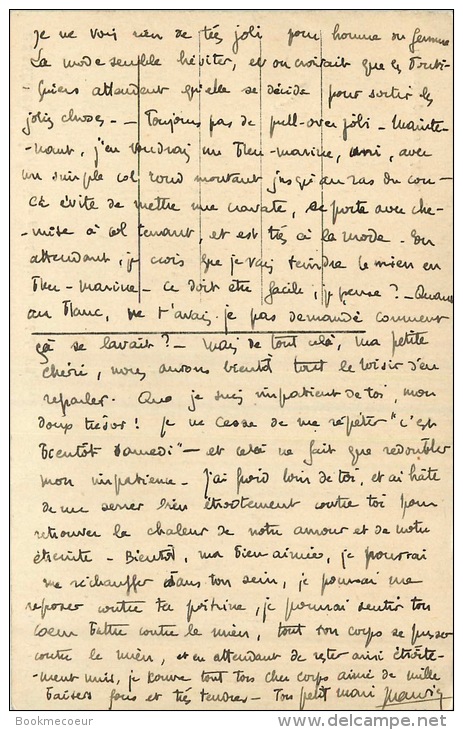 Je ne vois rien de très joli pour homme ou femme
La mode semble hésiter, et on croirait que les bouti-
-quiers attendent qu'elle se décide pour sortir les
jolies choses - Toujours pas de pull-over joli - Mainte-
-nant, j'en voudrais un bleu-marine, uni, avec
un simple col rond montant jusqu'au ras du cou -
Ça évite de mettre une cravate, se porte avec che-
-mise à col tenant, et est très à la mode - En
attendant, je crois que je vais teindre le mien en
bleu-marine - Ce doit être facile, j'y pense ? - Quant
au blanc, ne t'avais-je pas demandé comment
çà se lavait ? - Mais de tout celà, ma petite
chéri, nous aurons bientôt tout le loisir d'en
reparler. Que je suis impatient de toi, mon
doux trésor ! je ne cesse de me répéter "c'est
bientôt samedi" - et celà ne fait que redoubler
mon impatience - J'ai froid loin de toi, et ai hâte
de me serrer bien étroitement contre toi pour
retrouver la chaleur de notre amour et de notre
étreinte - Bientôt, ma bien aimée, je pourrai
me réchauffer dans ton sein, je pourrai me
reposer contre ta poitrine, je pourrai sentir ton
coeur battre contre le mien, tout ton corps se presser
contre le mien, et en attendant de rester ainsi étroite-
-ment unis, je couvre tout ton cher corps aimé de mille
baisers fous et très tendres - Ton petit mari
Bookmecoeur
www.delcampe.net